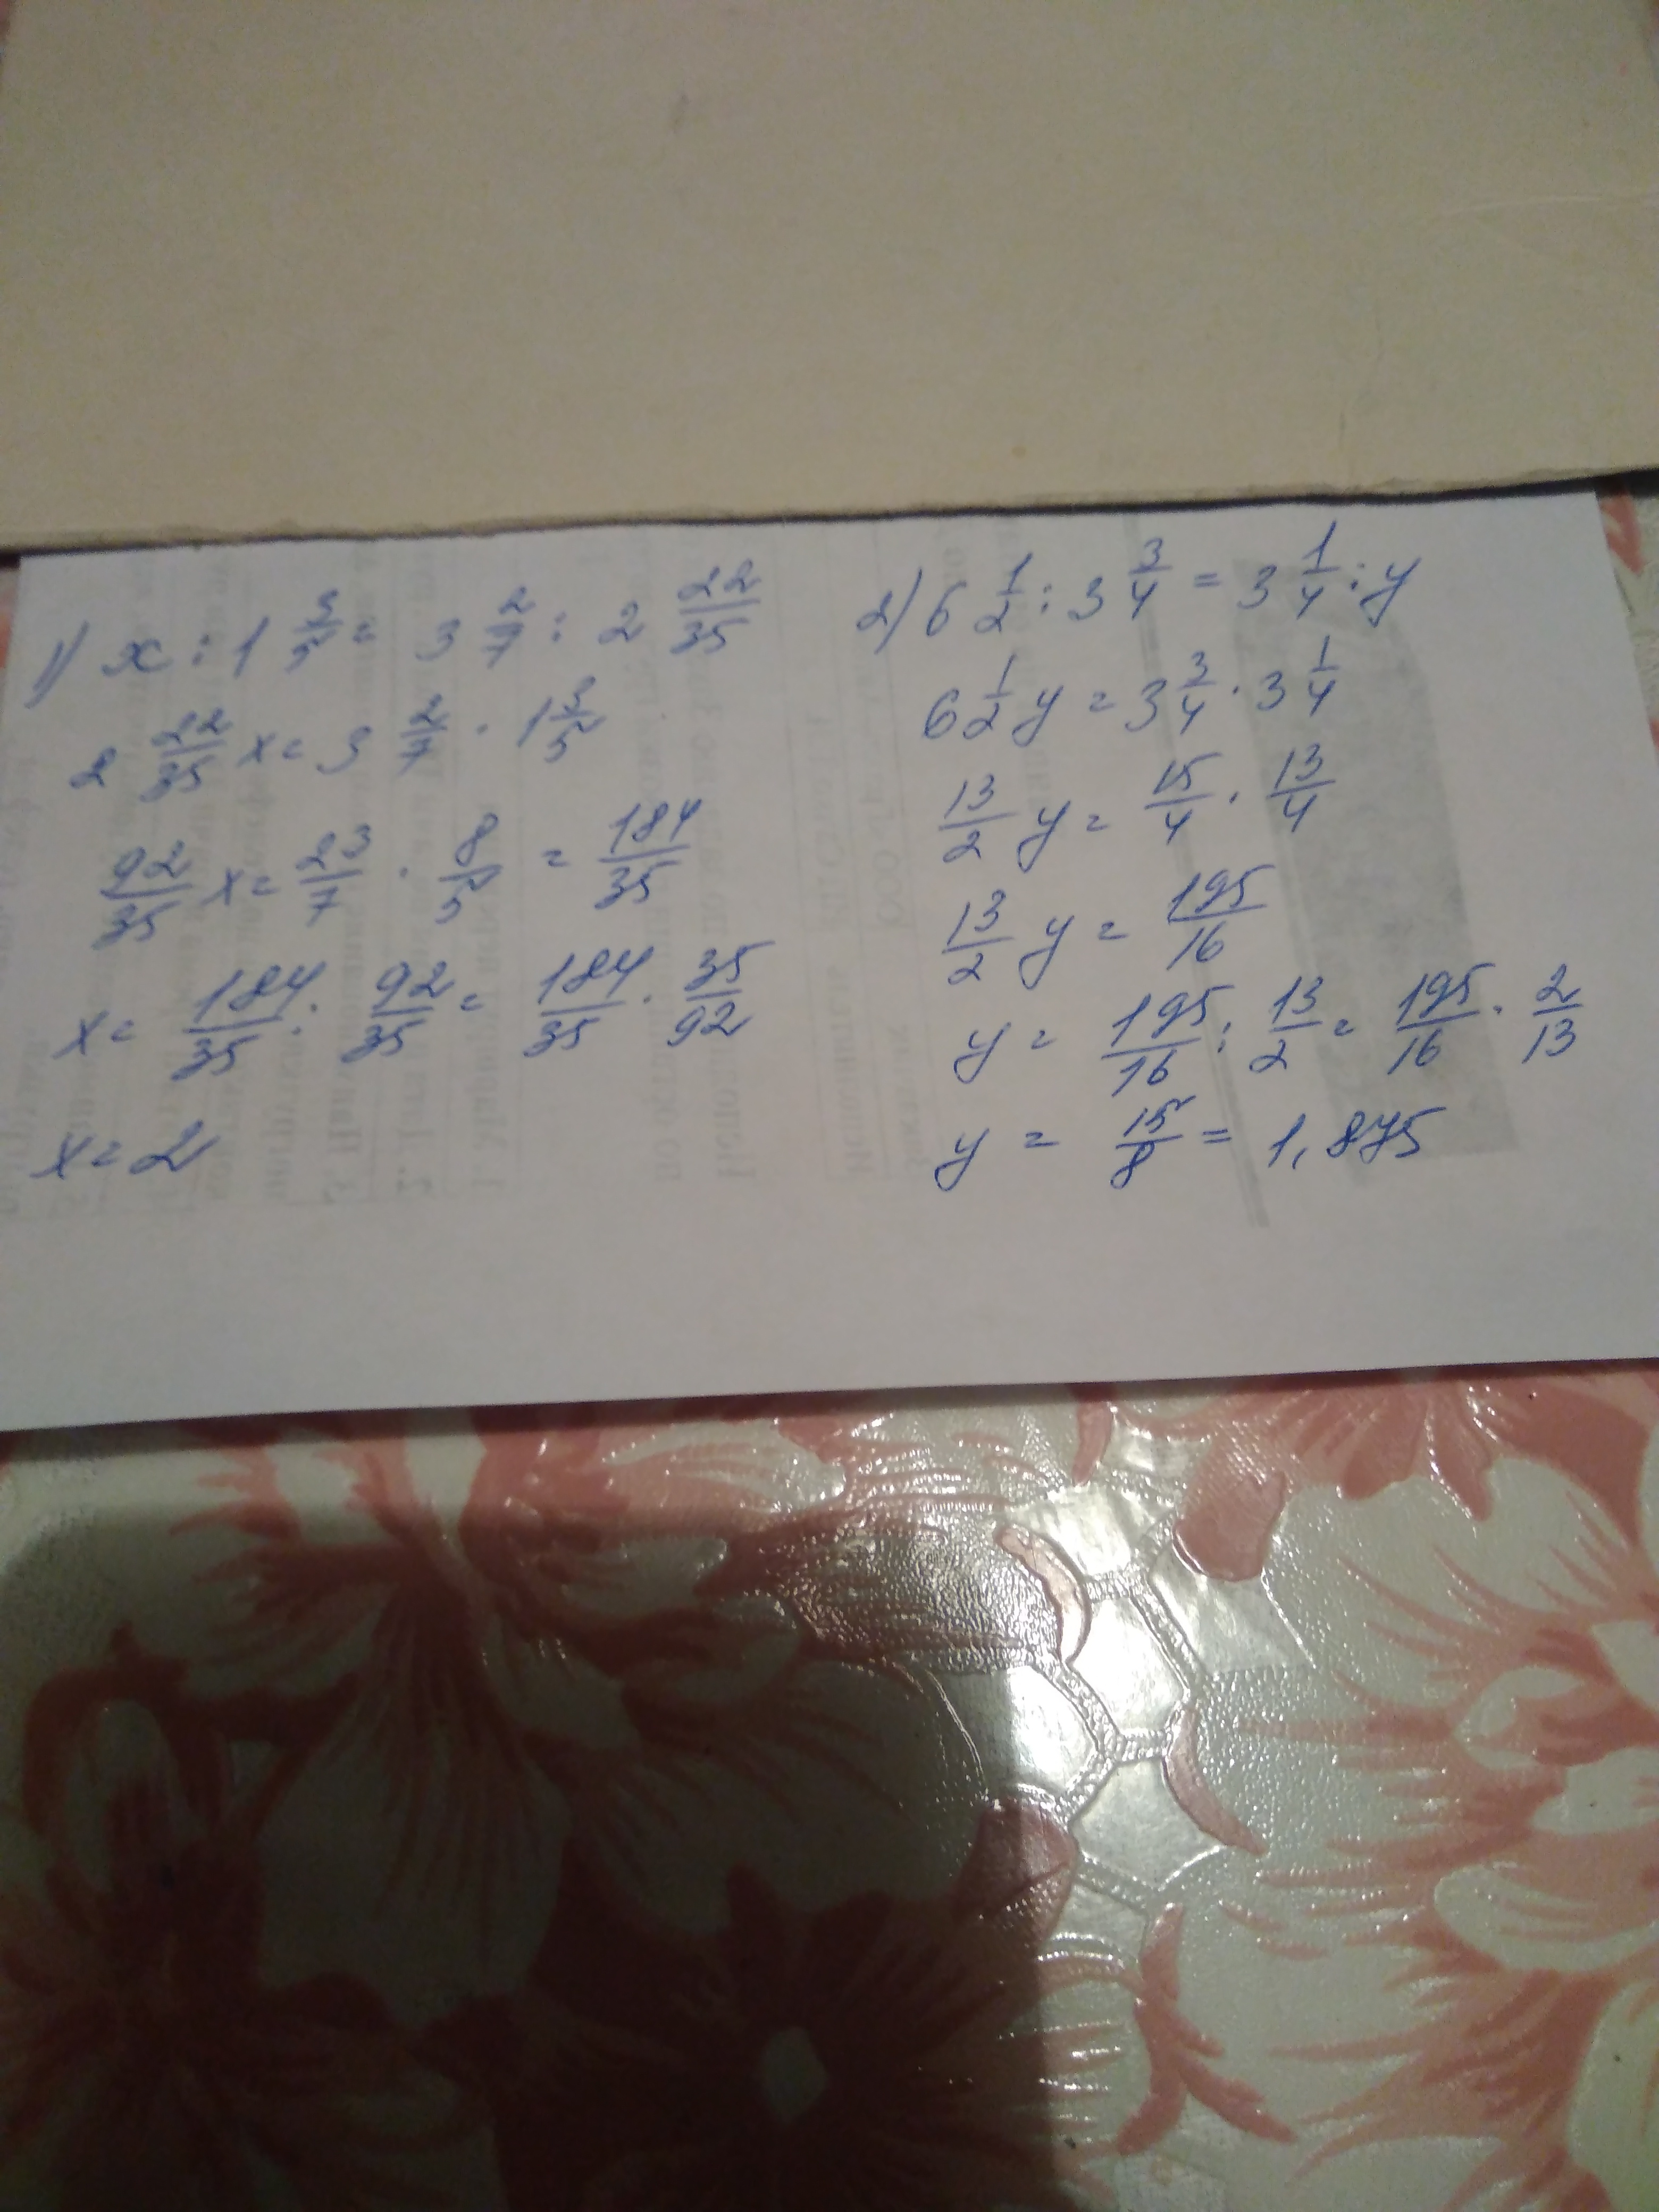 1) x : 1 3/5 = 3 2/7 : 2 22/35
2 22/35 x = 3 2/7 · 1 3/5
92/35 x = 23/7 · 8/5 = 184/35
x = 184/35 : 92/35 = 184/35 · 35/92
x = 2
2) 6 1/2 : 3 3/4 = 3 1/4 : y
6 1/2 y = 3 3/4 · 3 1/4
13/2 y = 15/4 · 13/4
13/2 y = 195/16
y = 195/16 : 13/2 = 195/16 · 2/13
y = 15/8 = 1,875